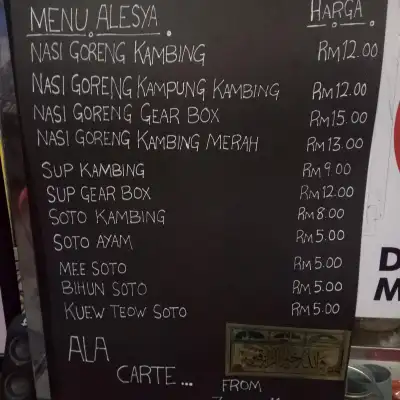 MENU ALESYA. HARGA.
NASI GORENG KAMBING RM12.00
NASI GORENG KAMPUNG KAMBING RM12.00
NASI GORENG GEAR BOX RM15.00
NASI GORENG KAMBING MERAH RM13.00
SUP KAMBING RM9.00
SUP GEAR BOX RM12.00
SOTO KAMBING RM8.00
SOTO AYAM RM5.00
MEE SOTO RM5.00
BIHUN SOTO RM5.00
KUEW TEOW SOTO RM5.00
ALA
CARTE...
FROM
D
M